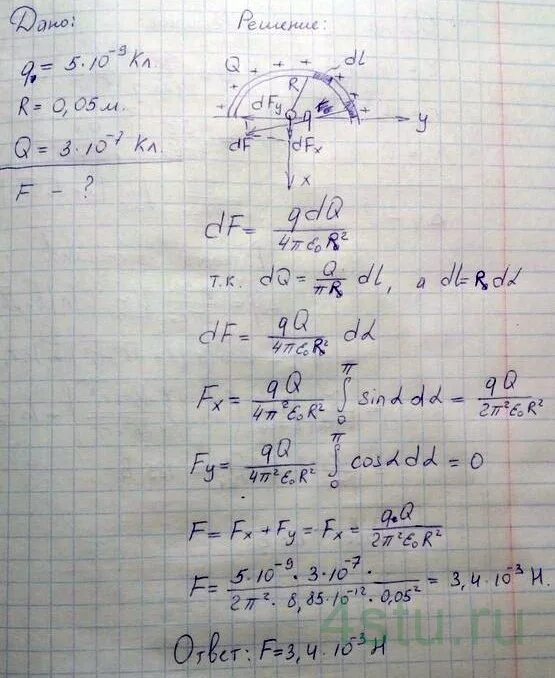 Дано:
q = 5·10⁻⁹ Кл.
R = 0,05 м.
Q = 3·10⁻⁷ Кл.
F - ?
Решение:
Q + + + + + + dl
R
dFy q y
dF dFx
x
dF = qdQ / 4πε₀R²
т.к. dQ = Q/πR dl, а dl = R dα
dF = qQ / 4πε₀R² dα
Fx = qQ / 4π²ε₀R² ∫₀^π sinα dα = qQ / 2π²ε₀R²
Fy = qQ / 4π²ε₀R² ∫₀^π cosα dα = 0
F = Fx + Fy = Fx = q·Q / 2π²ε₀R²
F = 5·10⁻⁹ · 3·10⁻⁷ · / 2π² · 8,85·10⁻¹² · 0,05² = 3,4·10⁻³ Н.
4stu.ru
Ответ: F = 3,4·10⁻³ Н